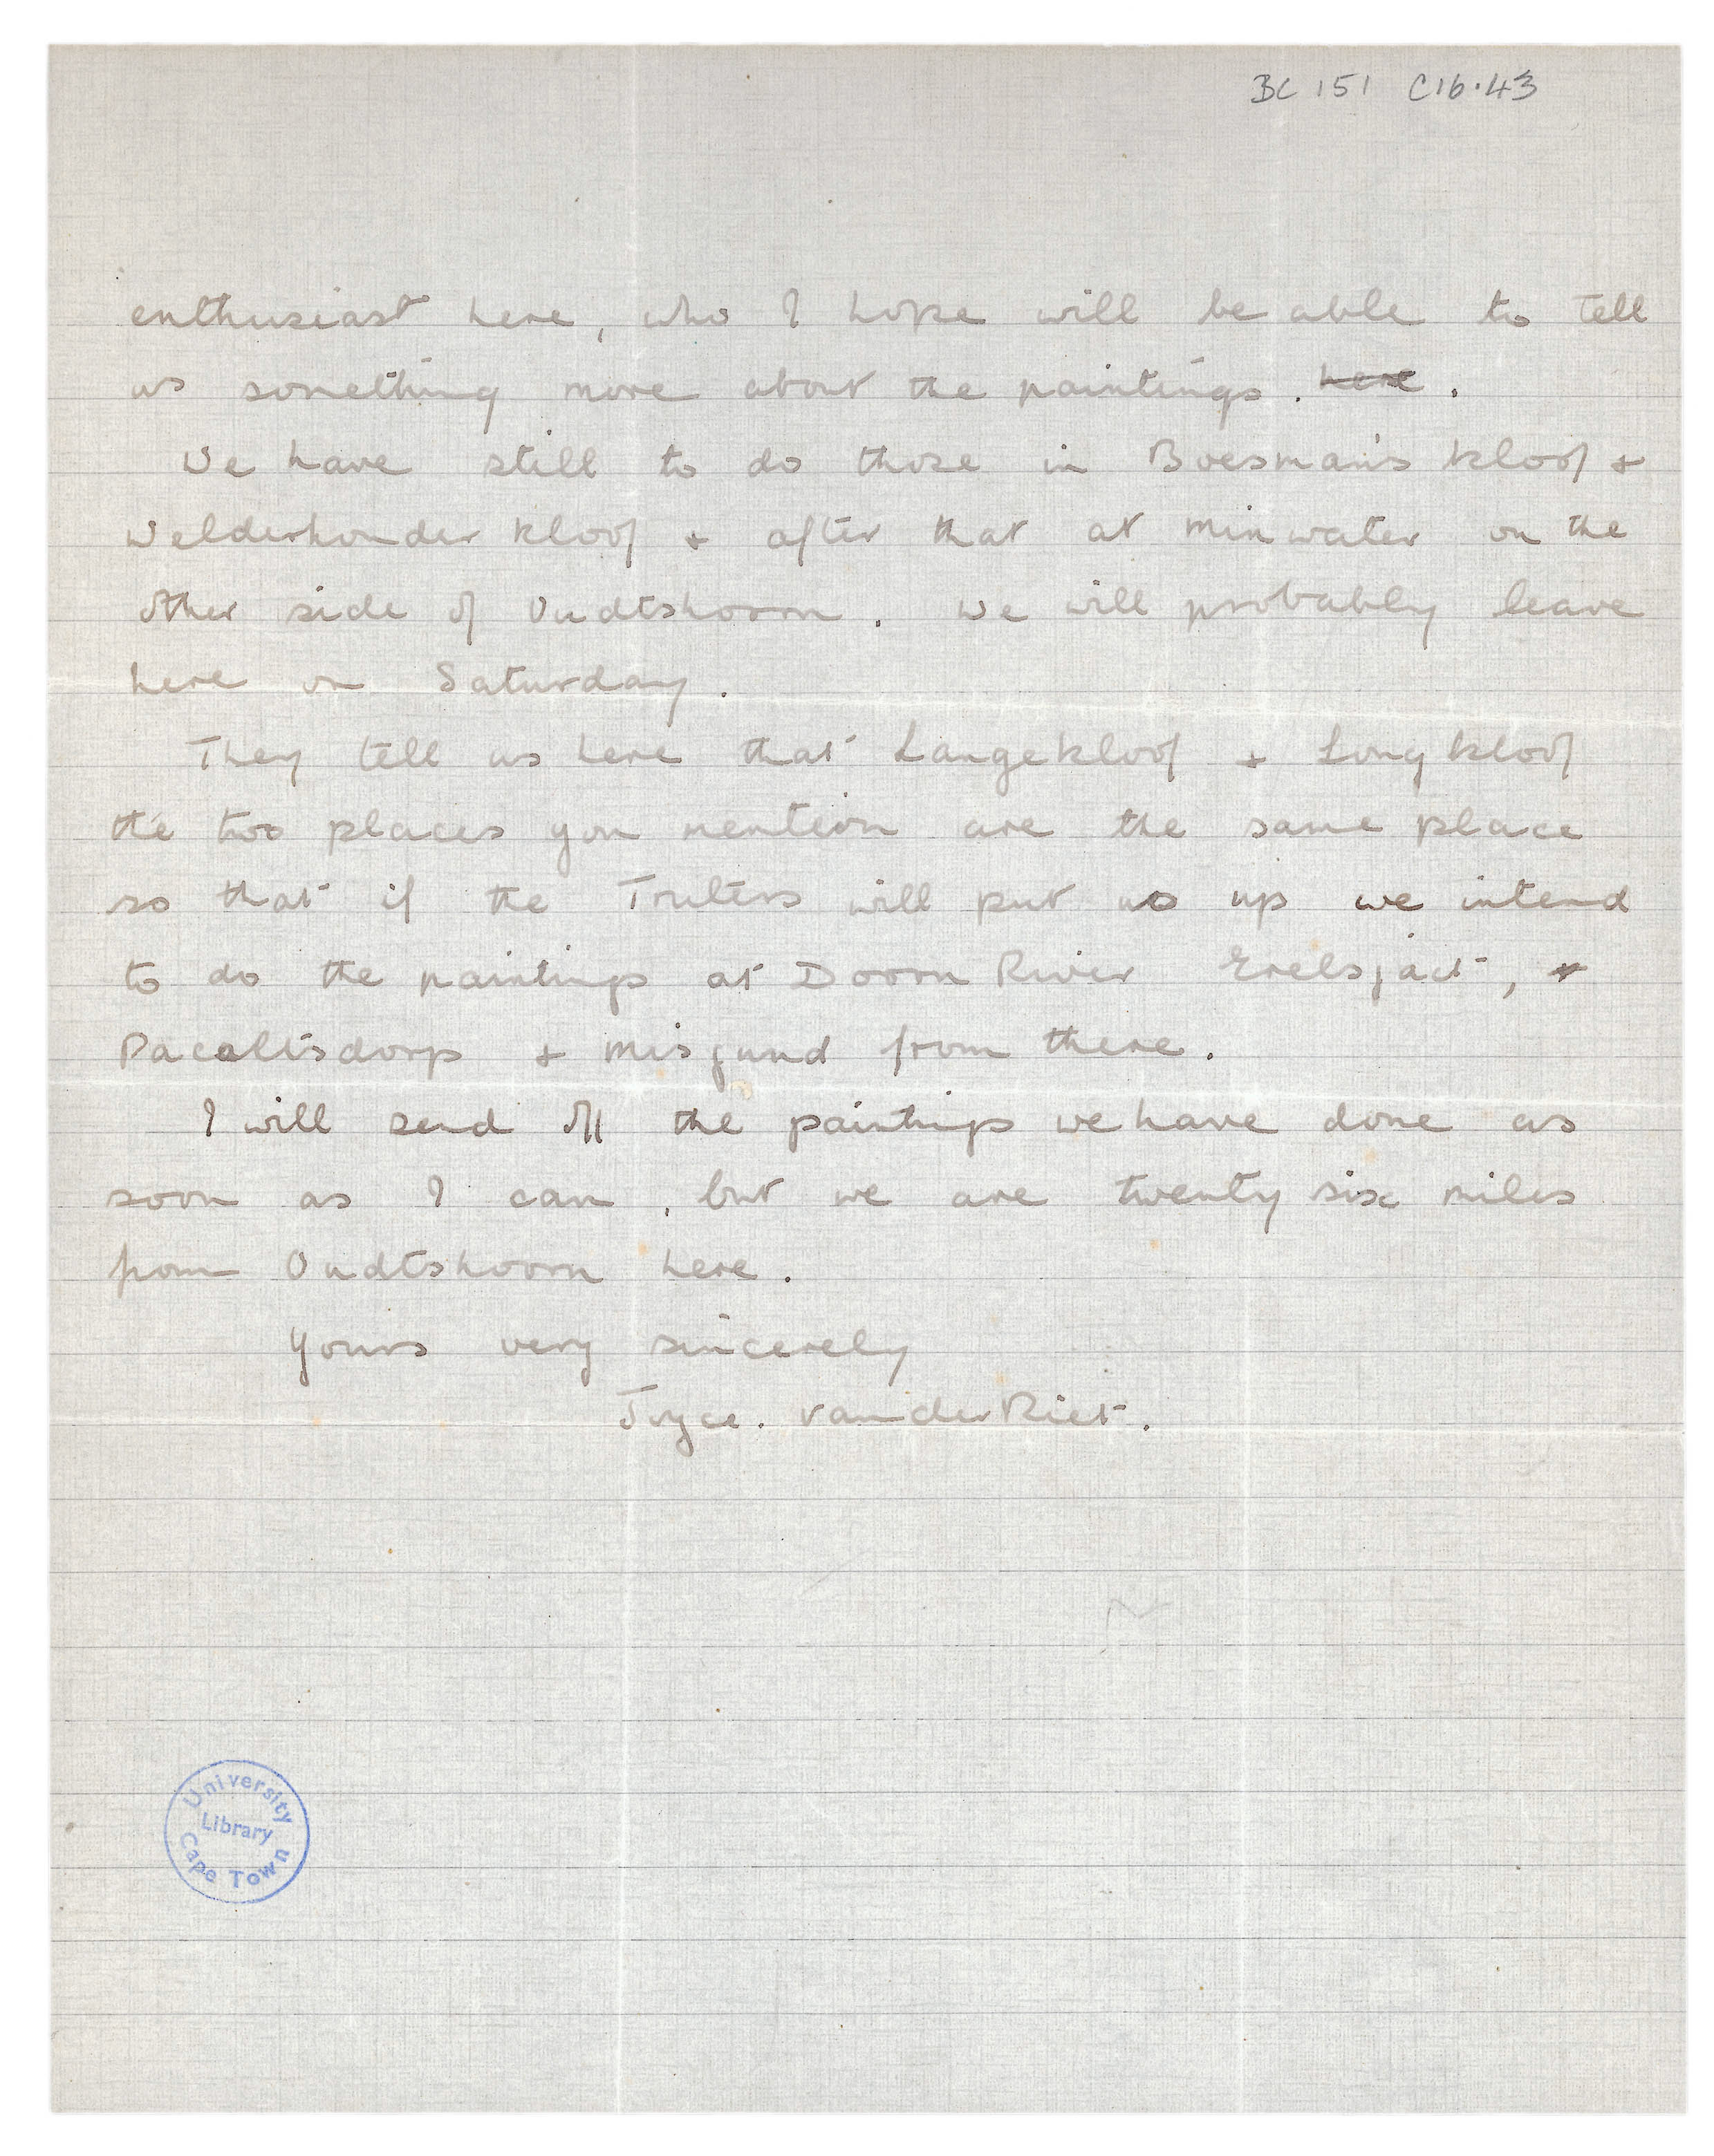 BC 151 C16.43
enthusiast here, who I hope will be able to tell
us something more about the paintings. here.
We have still to do those in Boesman's Kloof &
Welderhonder Kloof & after that at Minwater on the
other side of Oudtshoorn. We will probably leave
here on Saturday.
They tell us here that Langekloof & Long kloof
the two places you mention are the same place
so that if the Truters will put us up we intend
to do the paintings at Doorn River Erelsjact, &
Pacaltsdorp & Misgund from there.
I will send off the paintings we have done as
soon as I can, but we are twenty six miles
from Oudtshoorn here.
Yours very sincerely
Joyce. van der Riet.
University
Library
Cape Town